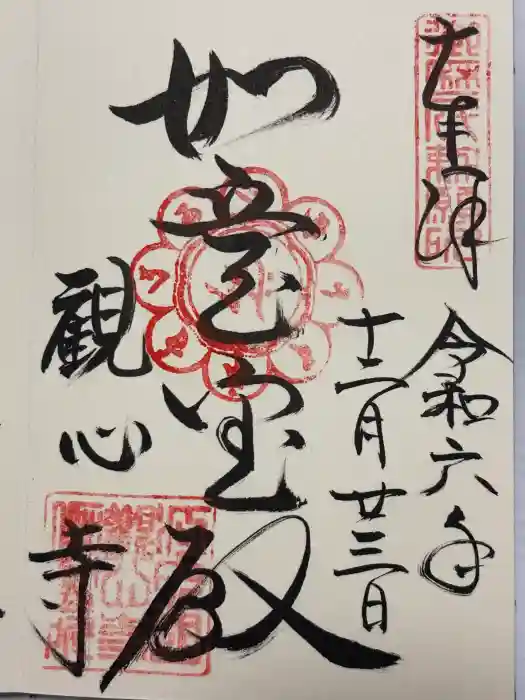 奉拝
令和六年
十二月廿三日
如意宝殿
観心寺